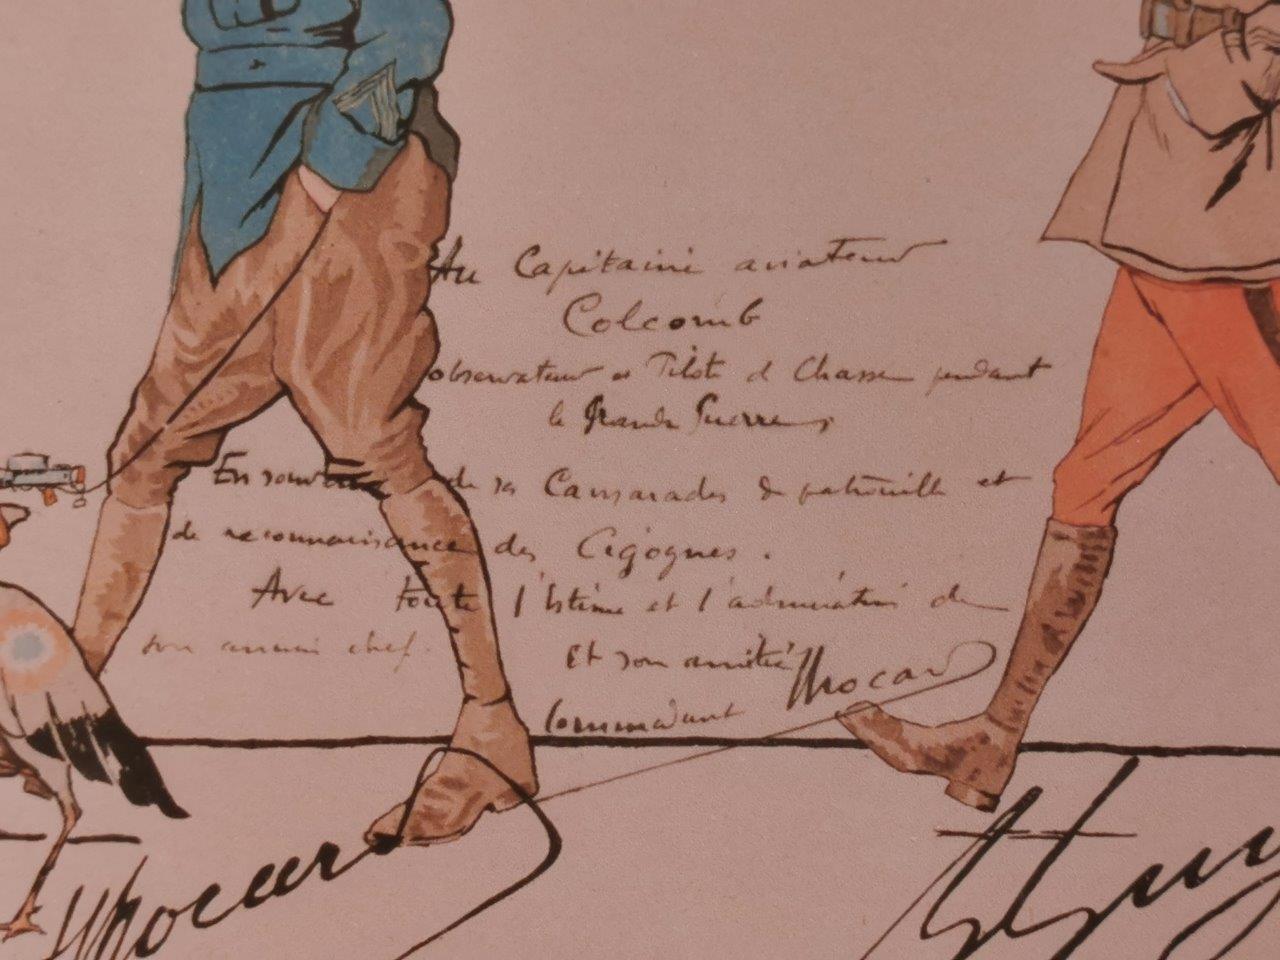 Au Capitaine aviateur
Colcomb
observateur et Pilote d Chasse pendant
la Grande Guerre
En souvenir de ses Camarades de patrouille et
de reconnaissance des Cigognes.
Avec toute l'Estime et l'admiration de
son ancien chef. Et son amitié Brocard
Commandant
Brocard